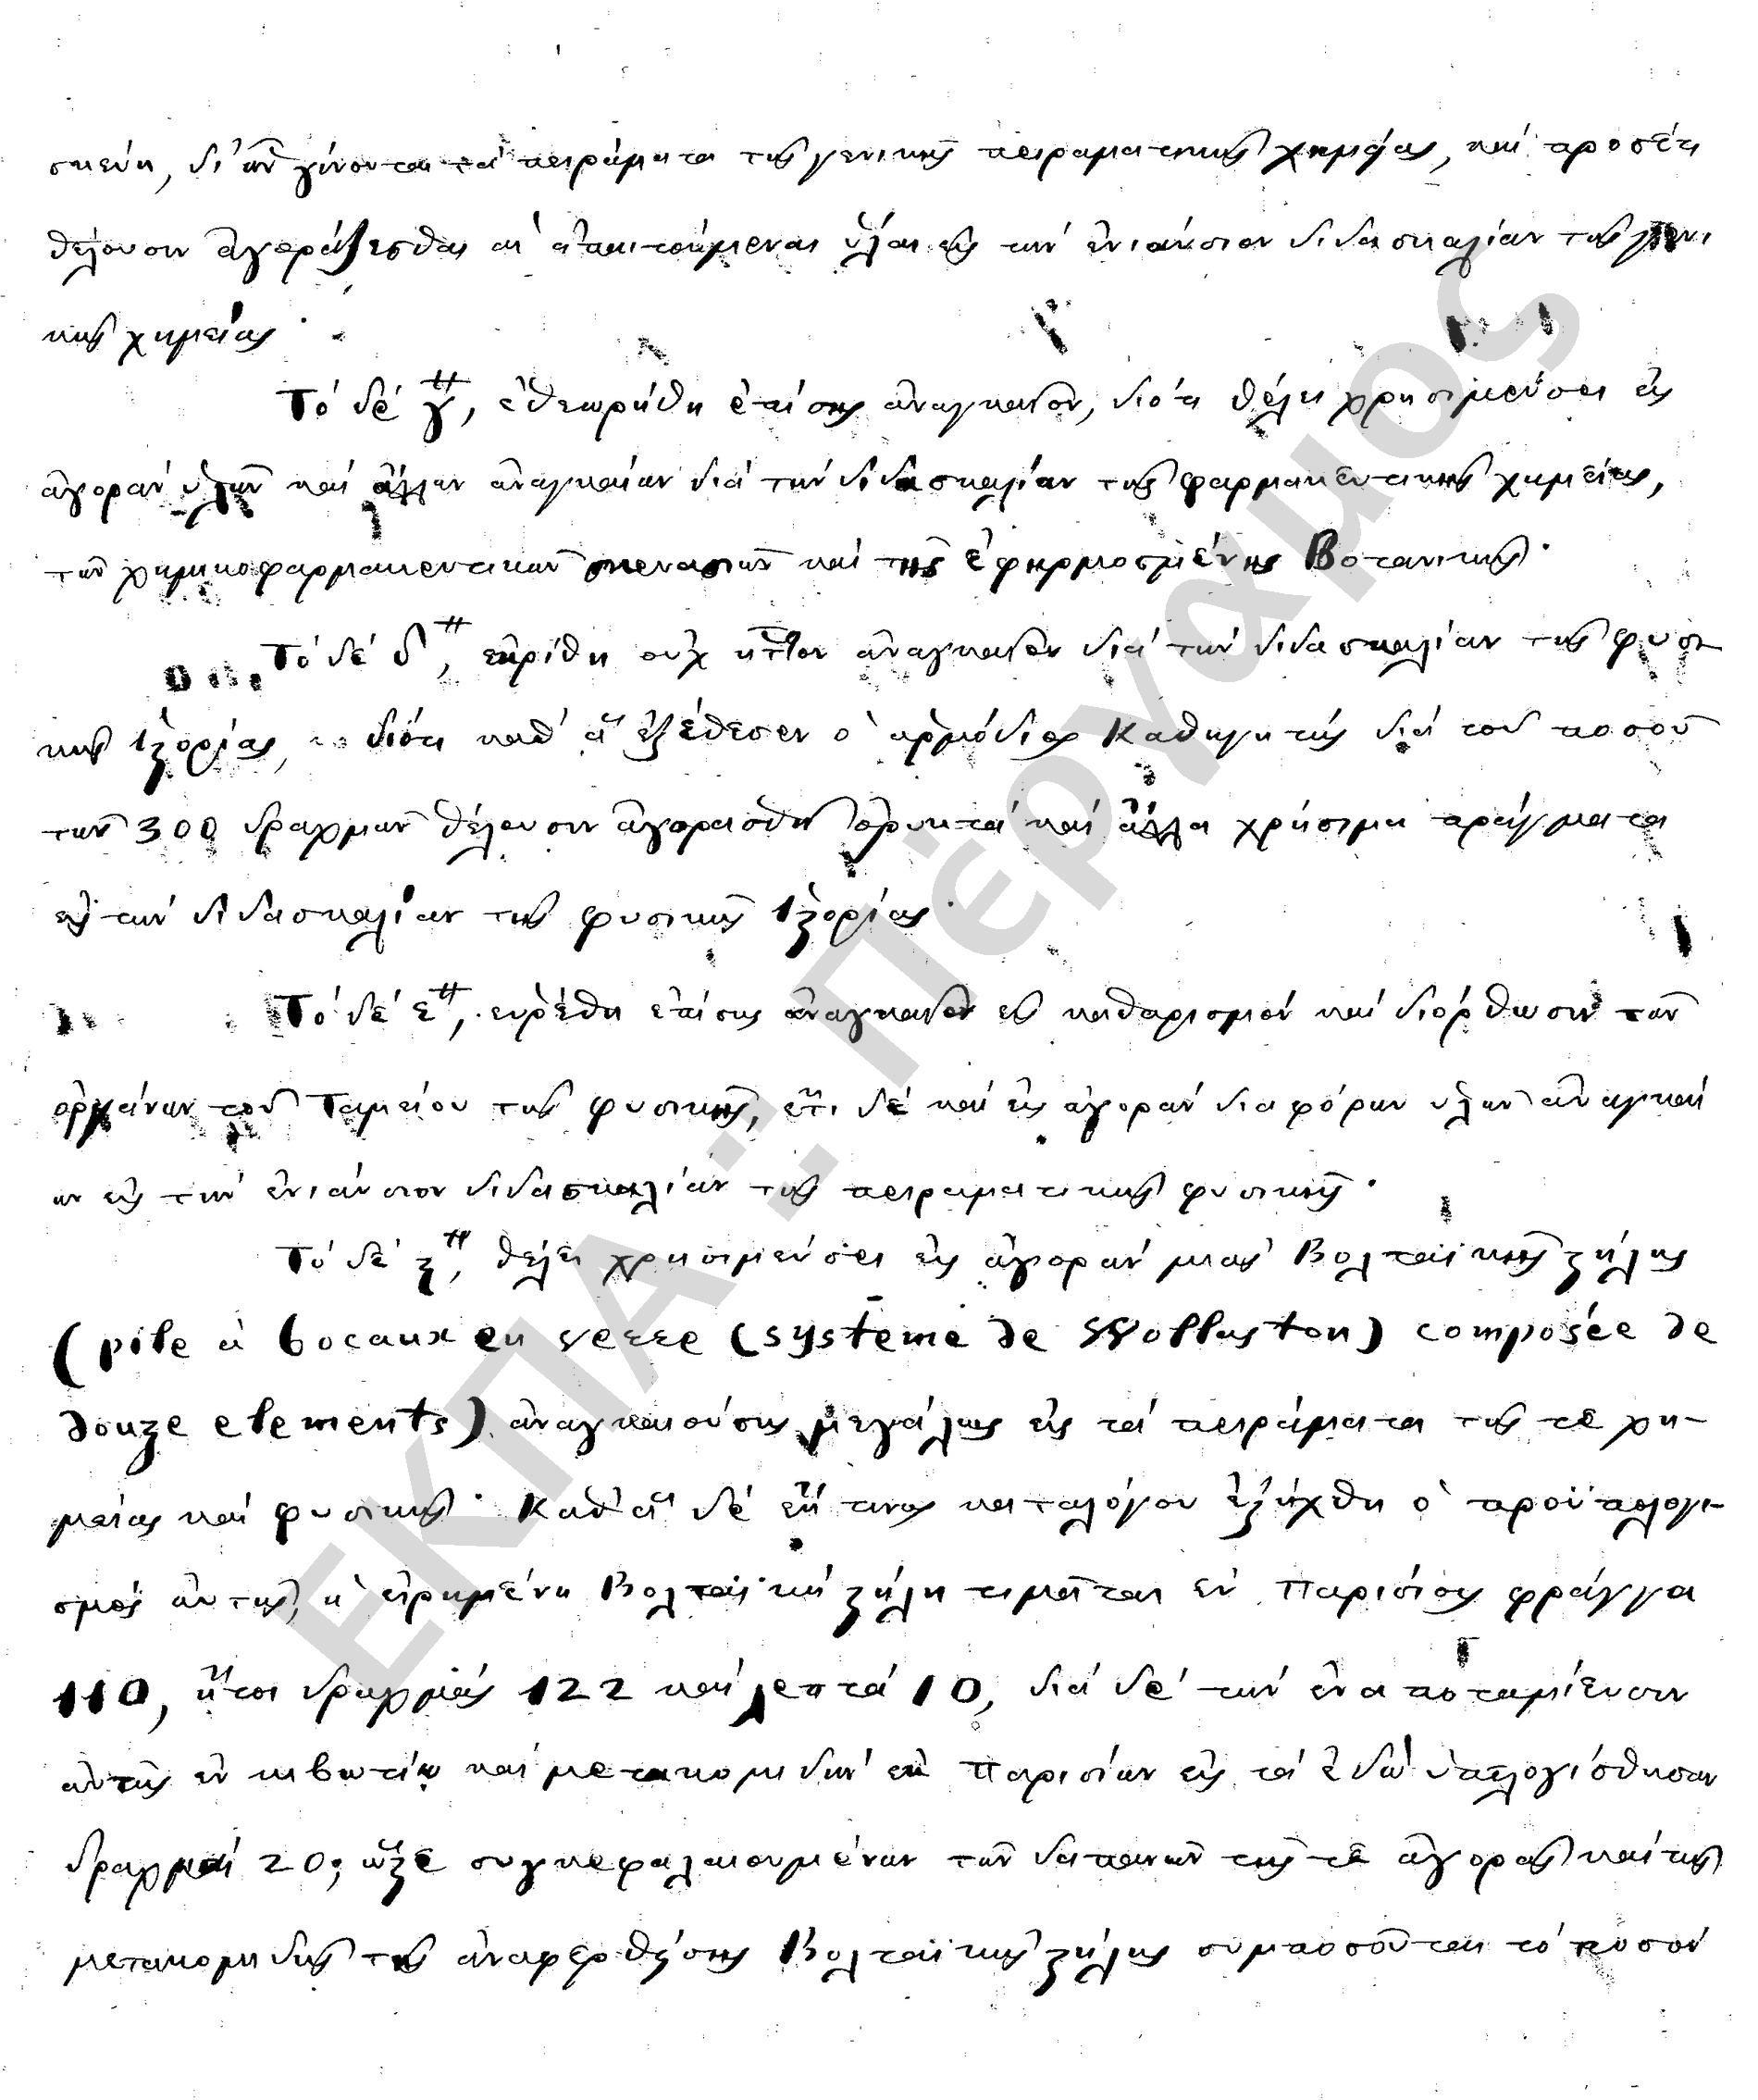 σκεύη, δι' ὧν γίνονται τὰ πειράματα τῆς γενικῆς πειραματικῆς χημείας, καὶ προσέτι
θέλουσιν ἀγοράζεσθαι αἱ ἀπαιτούμεναι ὗλαι εἰς τὴν ἐνιαύσιον διδασκαλίαν τῆς γενι
κῆς χημείας·
Τὸ δὲ γ', ἐθεωρήθη ἐπίσης ἀναγκαῖον, διότι θέλει χρησιμεύσει εἰς
ἀγορὰν ὑλῶν καὶ ἄλλων ἀναγκαίων διὰ τὴν διδασκαλίαν τῆς φαρμακευτικῆς χημείας,
τῶν χημικοφαρμακευτικῶν σκευασιῶν καὶ τῆς ἐφηρμοσμένης Βοτανικῆς·
Τὸ δὲ δ', εὑρέθη οὐχ ἧττον ἀναγκαῖον διὰ τὴν διδασκαλίαν τῆς φυσι
κῆς Ἱϛορίας, διότι καθ' ἃ ἐξέθεσεν ὁ ἁρμόδιος Καθηγητὴς διὰ τοῦ ποσοῦ
τῶν 300 δραχμῶν θέλουσιν ἀγορασθῆ ὀρυκτὰ καὶ ἄλλα χρήσιμα πράγματα
εἰς τὴν διδασκαλίαν τῆς φυσικῆς Ἱϛορίας·
Τὸ δὲ ε', εὑρέθη ἐπίσης ἀναγκαῖον εἰς καθαρισμὸν καὶ διόρθωσιν τῶν
ὀργάνων τοῦ Ταμείου τῆς φυσικῆς, ἔτι δὲ καὶ εἰς ἀγορὰν διαφόρων ὑλῶν ἀναγκαί
ων εἰς τὴν ἐνιαύσιον διδασκαλίαν τῆς πειραματικῆς φυσικῆς·
Τὸ δὲ ϛ', θέλει χρησιμεύσει εἰς ἀγορὰν μιᾶς Βολταϊκῆς ϛήλης
(pile à bocaux en verre (système de Wollaston) composée de
douze elements) ἀναγκαιούσης μεγάλως εἰς τὰ πειράματα τῆς τε χη-
μείας καὶ φυσικῆς· Καθ' ἃ δὲ ἔκ τινος καταλόγου ἐξήχθη ὁ προϋπολογι-
σμὸς αὐτῆς, ἡ εἰρημένη Βολταϊκὴ ϛήλη τιμᾶται ἐν Παρισίοις φράγγα
110, ἤτοι δραχμὰς 122 καὶ λεπτὰ 10, διὰ δὲ τὴν ἐναποταμίευσιν
αὐτῆς ἐν κιβωτίῳ καὶ μετακομιδὴν ἐκ Παρισίων εἰς τὰ ἐδῶ ὑπελογίσθησαν
δραχμαὶ 20, ὥϛε συγκεφαλαιουμένων τῶν δαπανῶν τῆς τε ἀγορᾶς καὶ τῆς
μετακομιδῆς τῆς ἀναφερθείσης Βολταϊκῆς ϛήλης συμποσοῦται τὸ ποσὸν
ΕΚΠΑ :: Πέργαμος